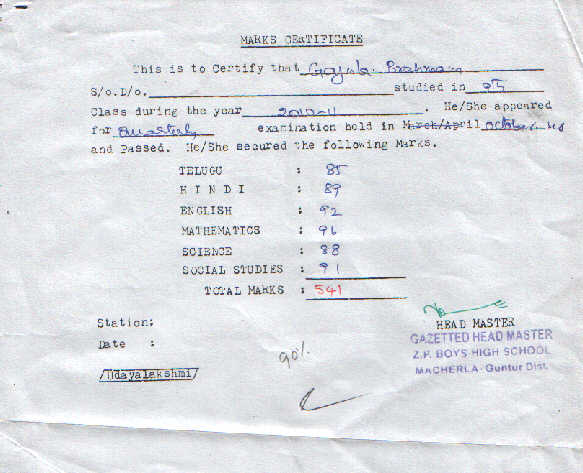 MARKS CERTIFICATE
This is to Certify that Gajula
S/o.D/o. studied in
Class during the year 2010-11. He/She appeared
for examination held in March/April october
and Passed. He/She secured the following Marks.
TELUGU : 85
HINDI : 89
ENGLISH : 92
MATHEMATICS : 96
SCIENCE : 88
SOCIAL STUDIES : 91
TOTAL MARKS : 541
Station:
HEAD MASTER
Date :
GAZETTED HEAD MASTER
90%
Z.P. BOYS HIGH SCHOOL
MACHERLA - Guntur Dist.
/Udayalakshmi/